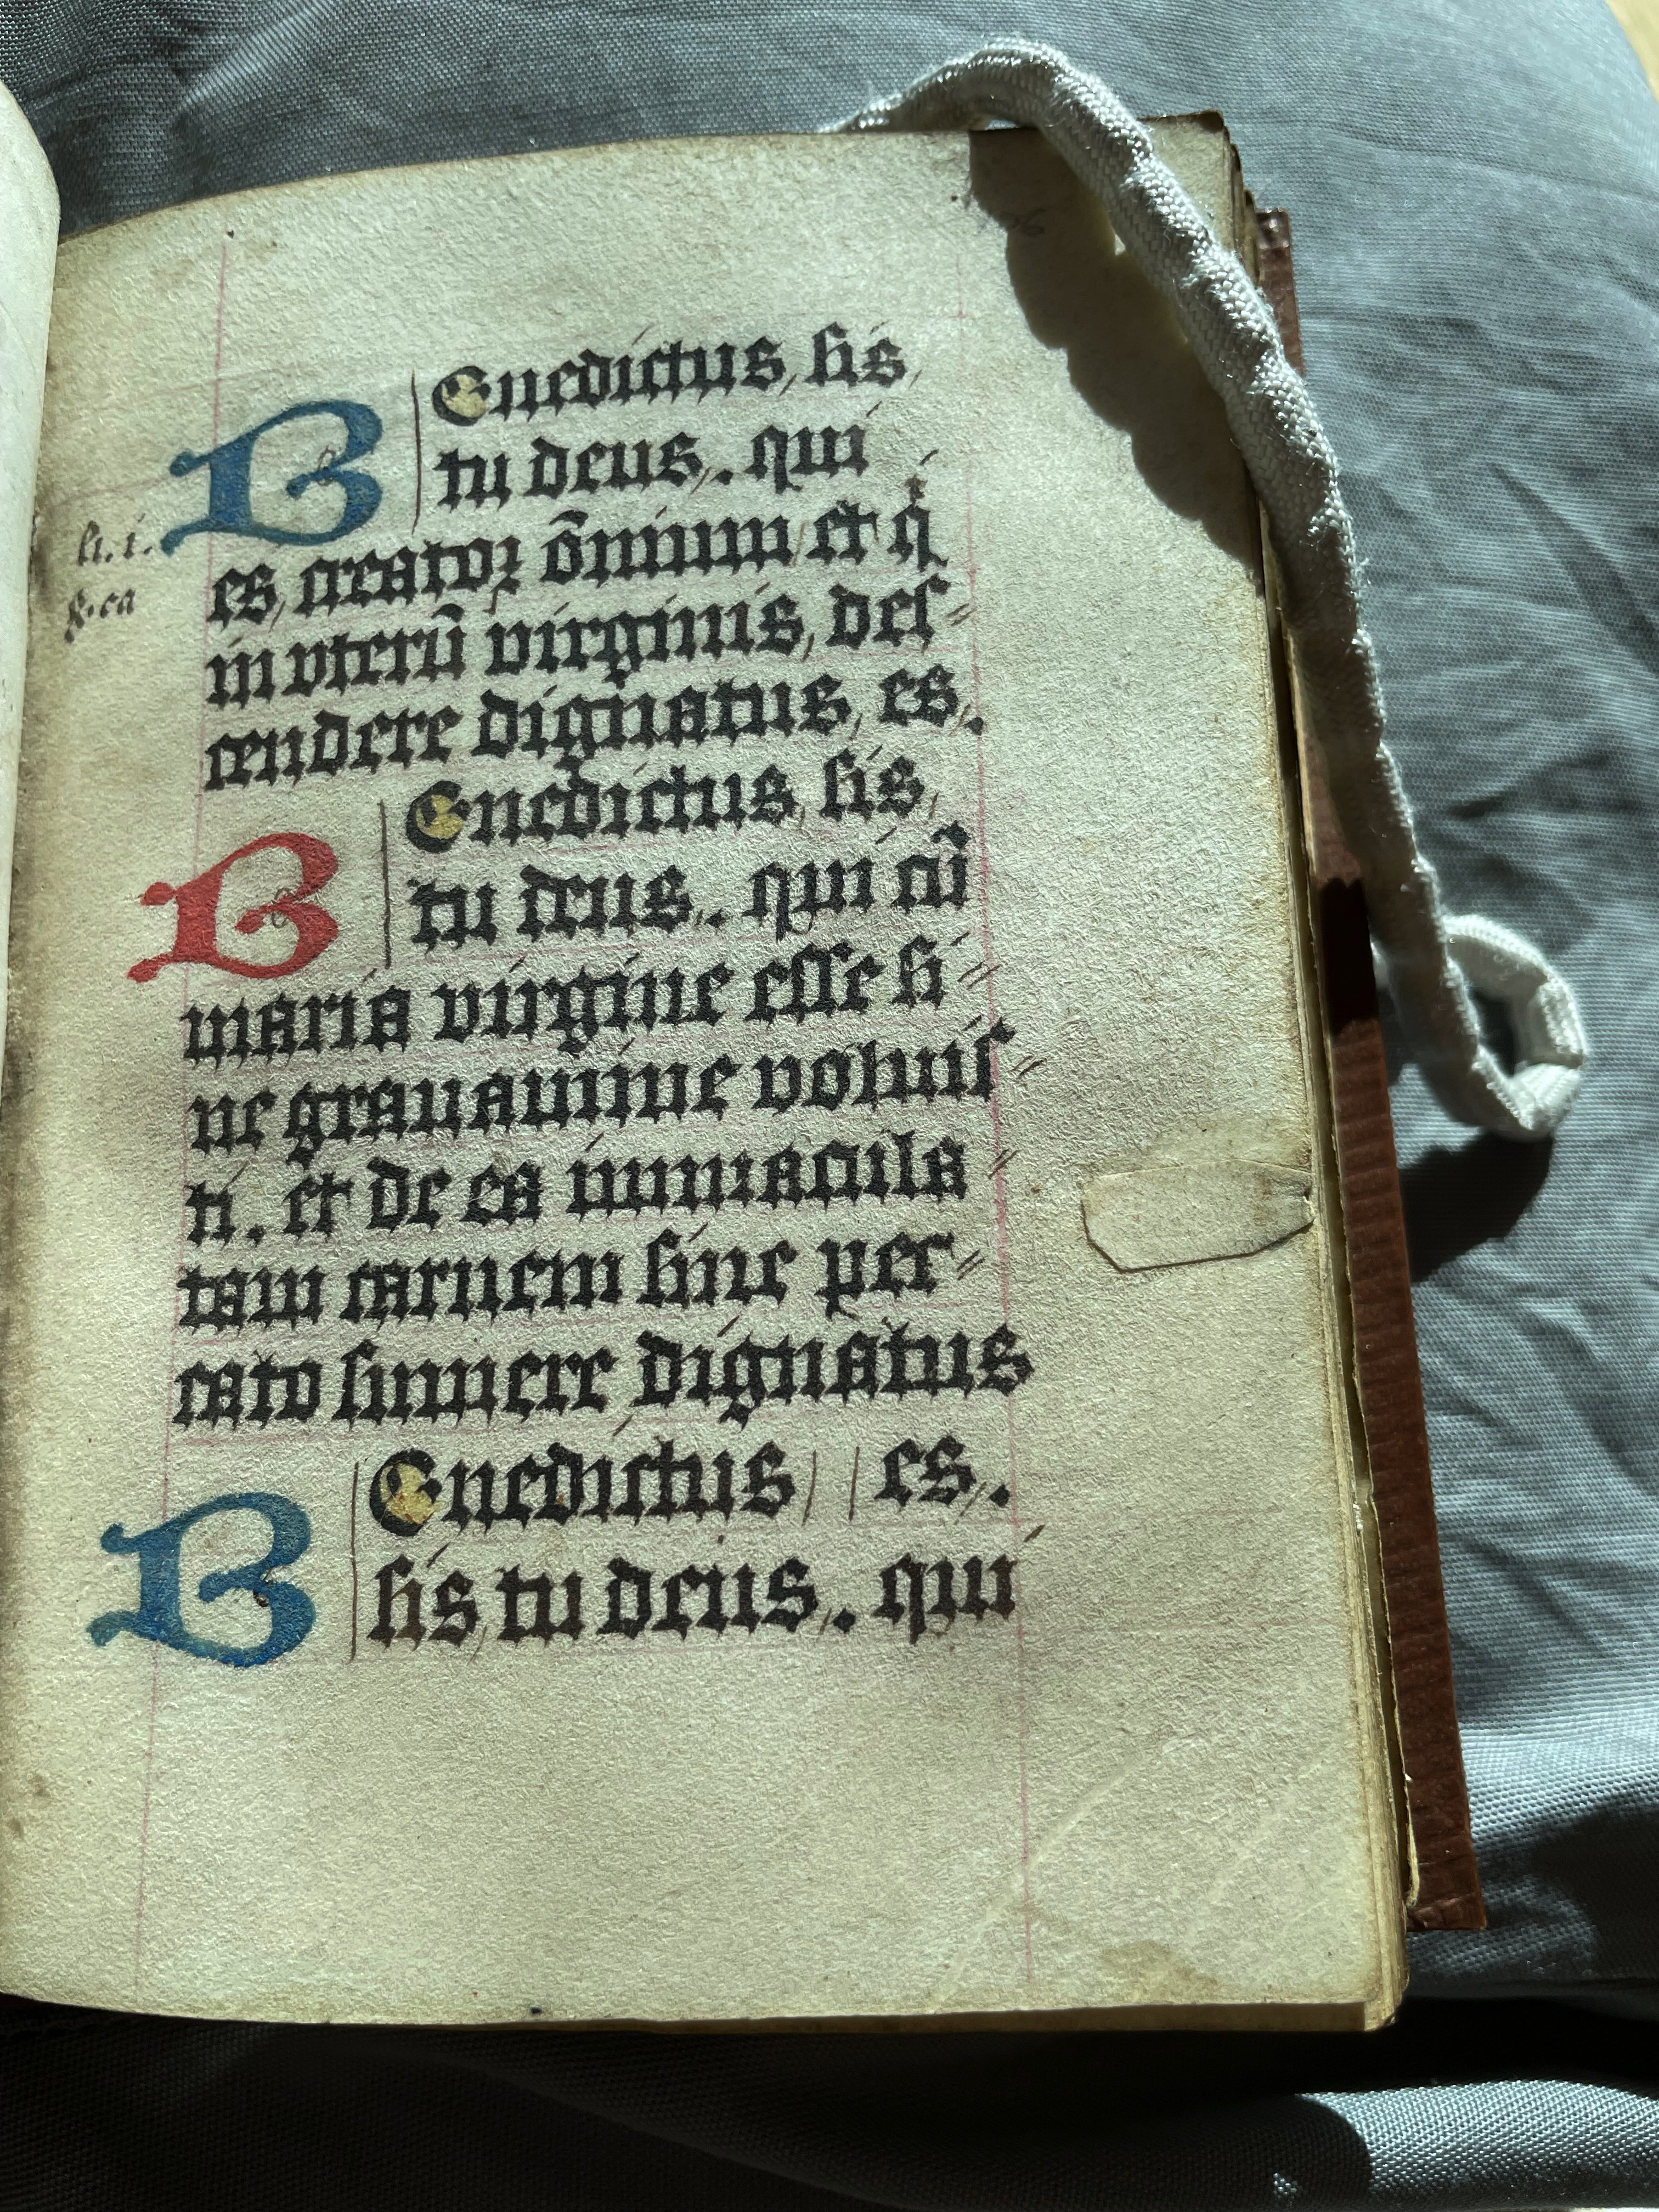 BEnedictus sis
tu deus. qui
es creator om̄nium et qⁱ
in vterū virginis des⸗
cendere dignatus es.
BEnedictus sis
tu deus. qui cū
maria virgine esse si⸗
ne grauamine voluis⸗
ti. et de ea immacula⸗
tam carnem sine pec⸗
cato sumere dignatus
BEnedictus es.
sis tu deus. qui